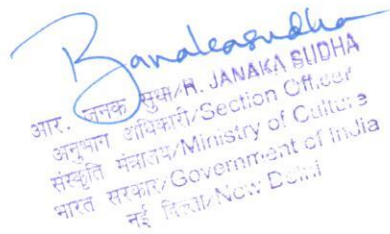 आर. जनक सुधा/R. JANAKA SUDHA
अनुभाग अधिकारी/Section Officer
संस्कृति मंत्रालय/Ministry of Culture
भारत सरकार/Government of India
नई दिल्ली/New Delhi